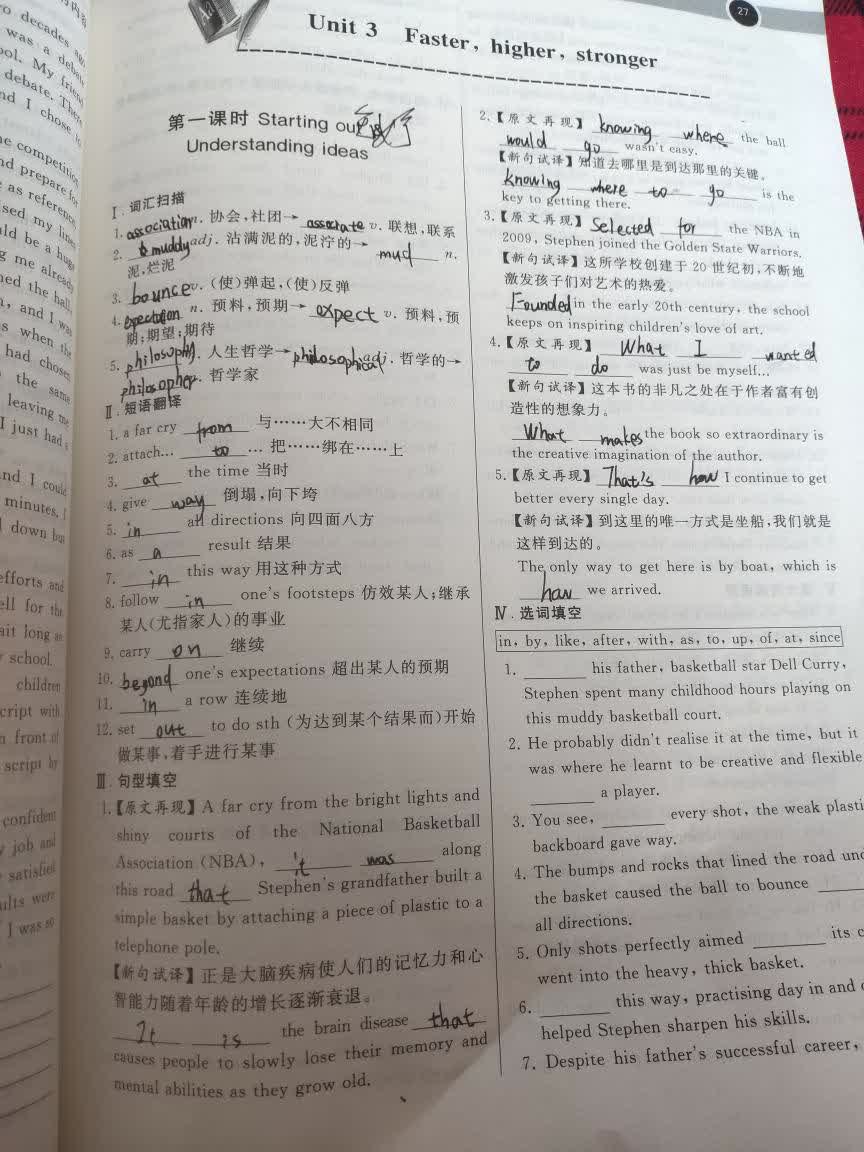 27
Unit 3 Faster, higher, stronger
第一课时 Starting out
Understanding ideas
Ⅰ. 词汇扫描
1. association n. 协会,社团→ associate v. 联想,联系
2. muddy adj. 沾满泥的,泥泞的→ mud n.
泥,烂泥
3. bounce v. (使)弹起,(使)反弹
4. expectation n. 预料,预期→ expect v. 预料,预
期;期望;期待
5. philosophy n. 人生哲学→ philosophical adj. 哲学的→
philosopher n. 哲学家
Ⅱ. 短语翻译
1. a far cry from 与……大不相同
2. attach... to ... 把……绑在……上
3. at the time 当时
4. give way 倒塌,向下垮
5. in all directions 向四面八方
6. as a result 结果
7. in this way 用这种方式
8. follow in one's footsteps 仿效某人;继承
某人(尤指家人)的事业
9. carry on 继续
10. beyond one's expectations 超出某人的预期
11. in a row 连续地
12. set out to do sth (为达到某个结果而)开始
做某事,着手进行某事
Ⅲ. 句型填空
1.【原文再现】A far cry from the bright lights and
shiny courts of the National Basketball
Association (NBA), it was along
this road that Stephen's grandfather built a
simple basket by attaching a piece of plastic to a
telephone pole.
【新句试译】正是大脑疾病使人们的记忆力和心
智能力随着年龄的增长逐渐衰退。
It is the brain disease that
causes people to slowly lose their memory and
mental abilities as they grow old.
2.【原文再现】knowing where the ball
would go wasn't easy.
【新句试译】知道去哪里是到达那里的关键。
knowing where to go is the
key to getting there.
3.【原文再现】Selected for the NBA in
2009, Stephen joined the Golden State Warriors.
【新句试译】这所学校创建于 20 世纪初,不断地
激发孩子们对艺术的热爱。
Founded in the early 20th century, the school
keeps on inspiring children's love of art.
4.【原文再现】What I wanted
to do was just be myself...
【新句试译】这本书的非凡之处在于作者富有创
造性的想象力。
What makes the book so extraordinary is
the creative imagination of the author.
5.【原文再现】That's how I continue to get
better every single day.
【新句试译】到这里的唯一方式是坐船,我们就是
这样到达的。
The only way to get here is by boat, which is
how we arrived.
Ⅳ. 选词填空
in, by, like, after, with, as, to, up, of, at, since
1. ______ his father, basketball star Dell Curry,
Stephen spent many childhood hours playing on
this muddy basketball court.
2. He probably didn't realise it at the time, but it
was where he learnt to be creative and flexible
______ a player.
3. You see, ______ every shot, the weak plasti
backboard gave way.
4. The bumps and rocks that lined the road und
the basket caused the ball to bounce ______
all directions.
5. Only shots perfectly aimed ______ its c
went into the heavy, thick basket.
6. ______ this way, practising day in and
helped Stephen sharpen his skills.
7. Despite his father's successful career,